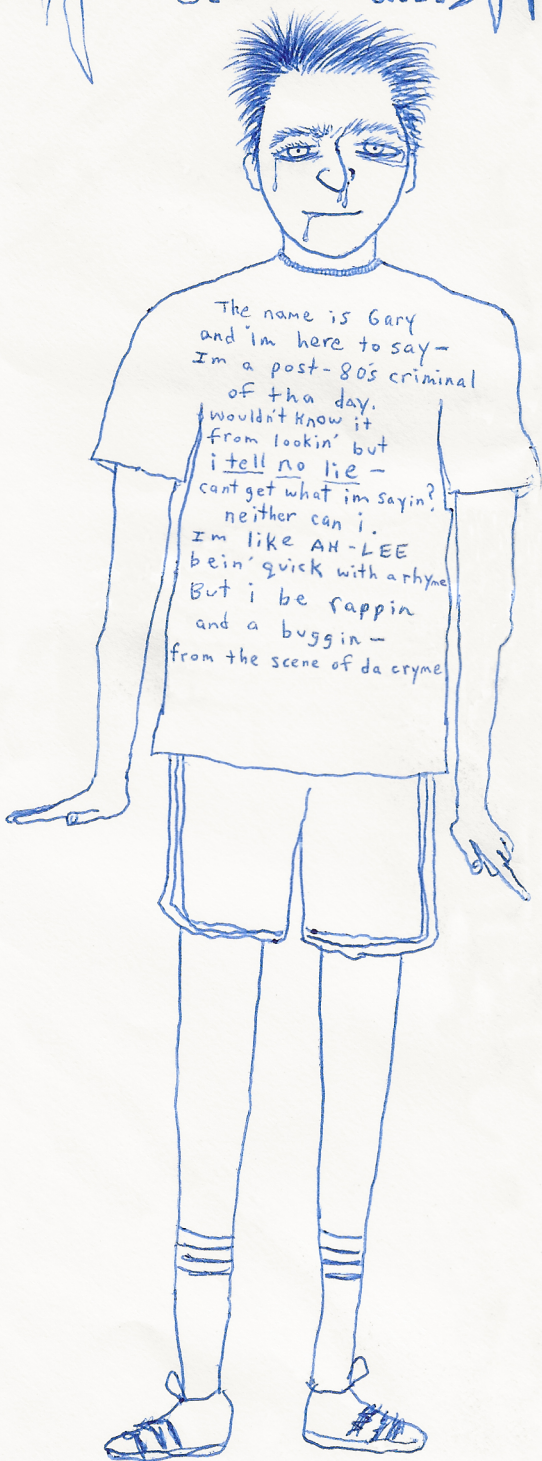 The name is Gary
and im here to say-
Im a post-80's criminal
of tha day.
wouldn't know it
from lookin' but
i tell no lie -
cant get what im sayin?
neither can i.
Im like AH-LEE
bein' quick with a rhyme
But i be rappin
and a buggin-
from the scene of da cryme